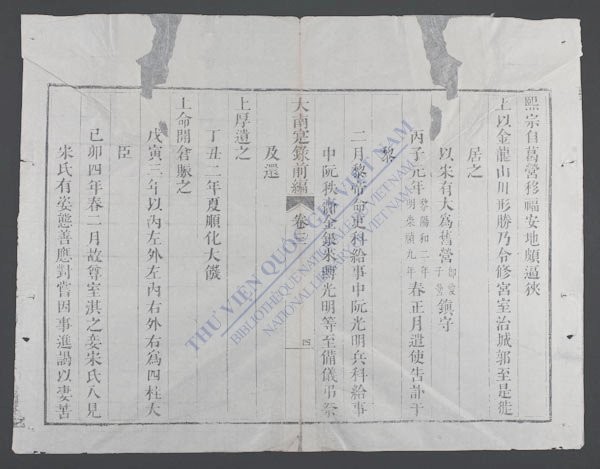 熙宗自葛營移福安地頗逼狹
上以金龍山川形勝乃令修宮室治城郭至是徙
居之
以宋有大為舊營鎮守
丙子元年黎陽和二年明崇禎九年春正月遣使告訃于
黎
二月黎帝命吏科給事中阮光明兵科給事
中阮秩金銀光明等至備儀弔祭
大南寔錄前編 卷三 四
及還
上厚遣之
丁丑二年夏順化大饑
上命開倉賑之
戊寅三年以內左外左內右外右為四柱大
臣
己卯四年春二月故尊室淇之妾宋氏入見
宋氏有姿態善應對嘗因事進謁以妻苦
THƯ VIỆN QUỐC GIA VIỆT NAM
BIBLIOTHÈQUE NATIONALE DU VIETNAM
NATIONAL LIBRARY OF VIETNAM